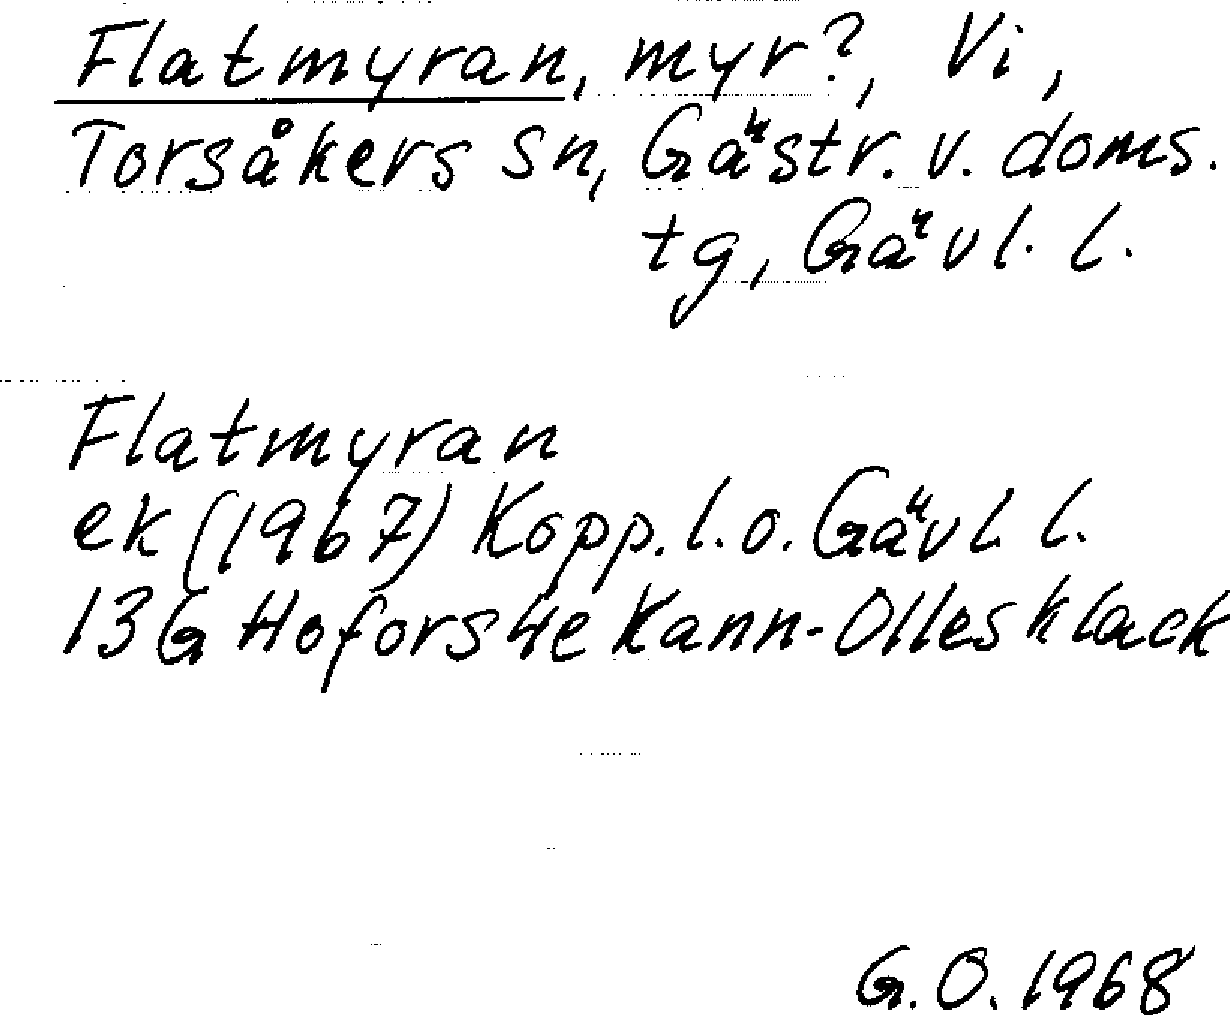 Flatmyran, myr?, Vi,
Torsåkers Sn, Gästr. v. doms.
tg, Gävl. l.
Flatmyran
ek (1967) Kopp. l. o. Gävl. l.
13G Hofors 4e Kann-Ollesklack
G. O. 1968